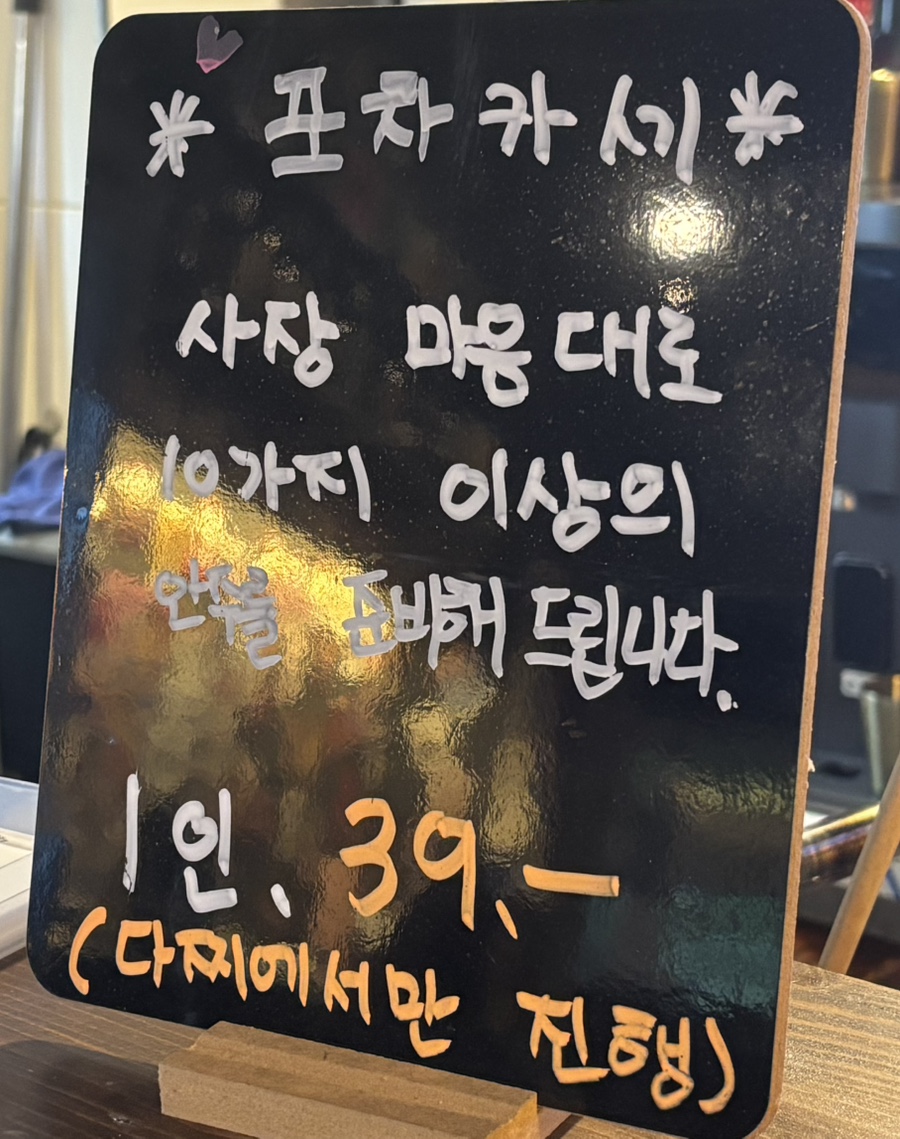 * 포차카세 *
사장 마음대로
10가지 이상의
안주를 준비해 드립니다.
1인, 39,-
(다찌에서만 진행)